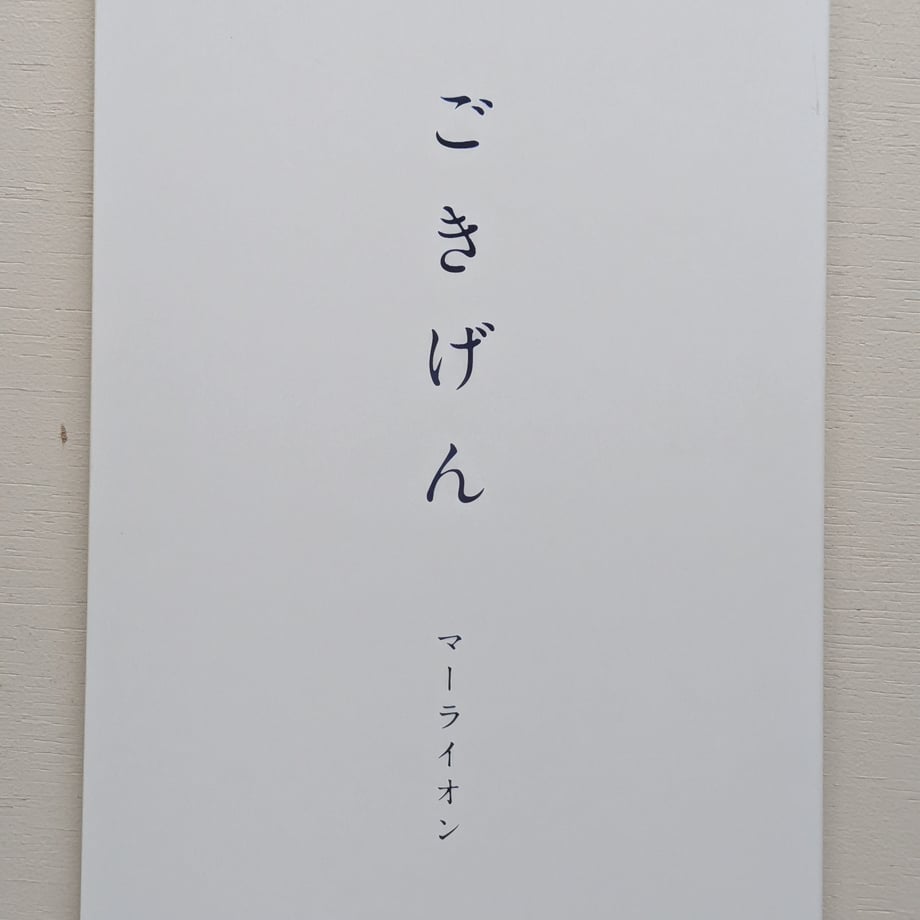 ごきげん
マーライオン